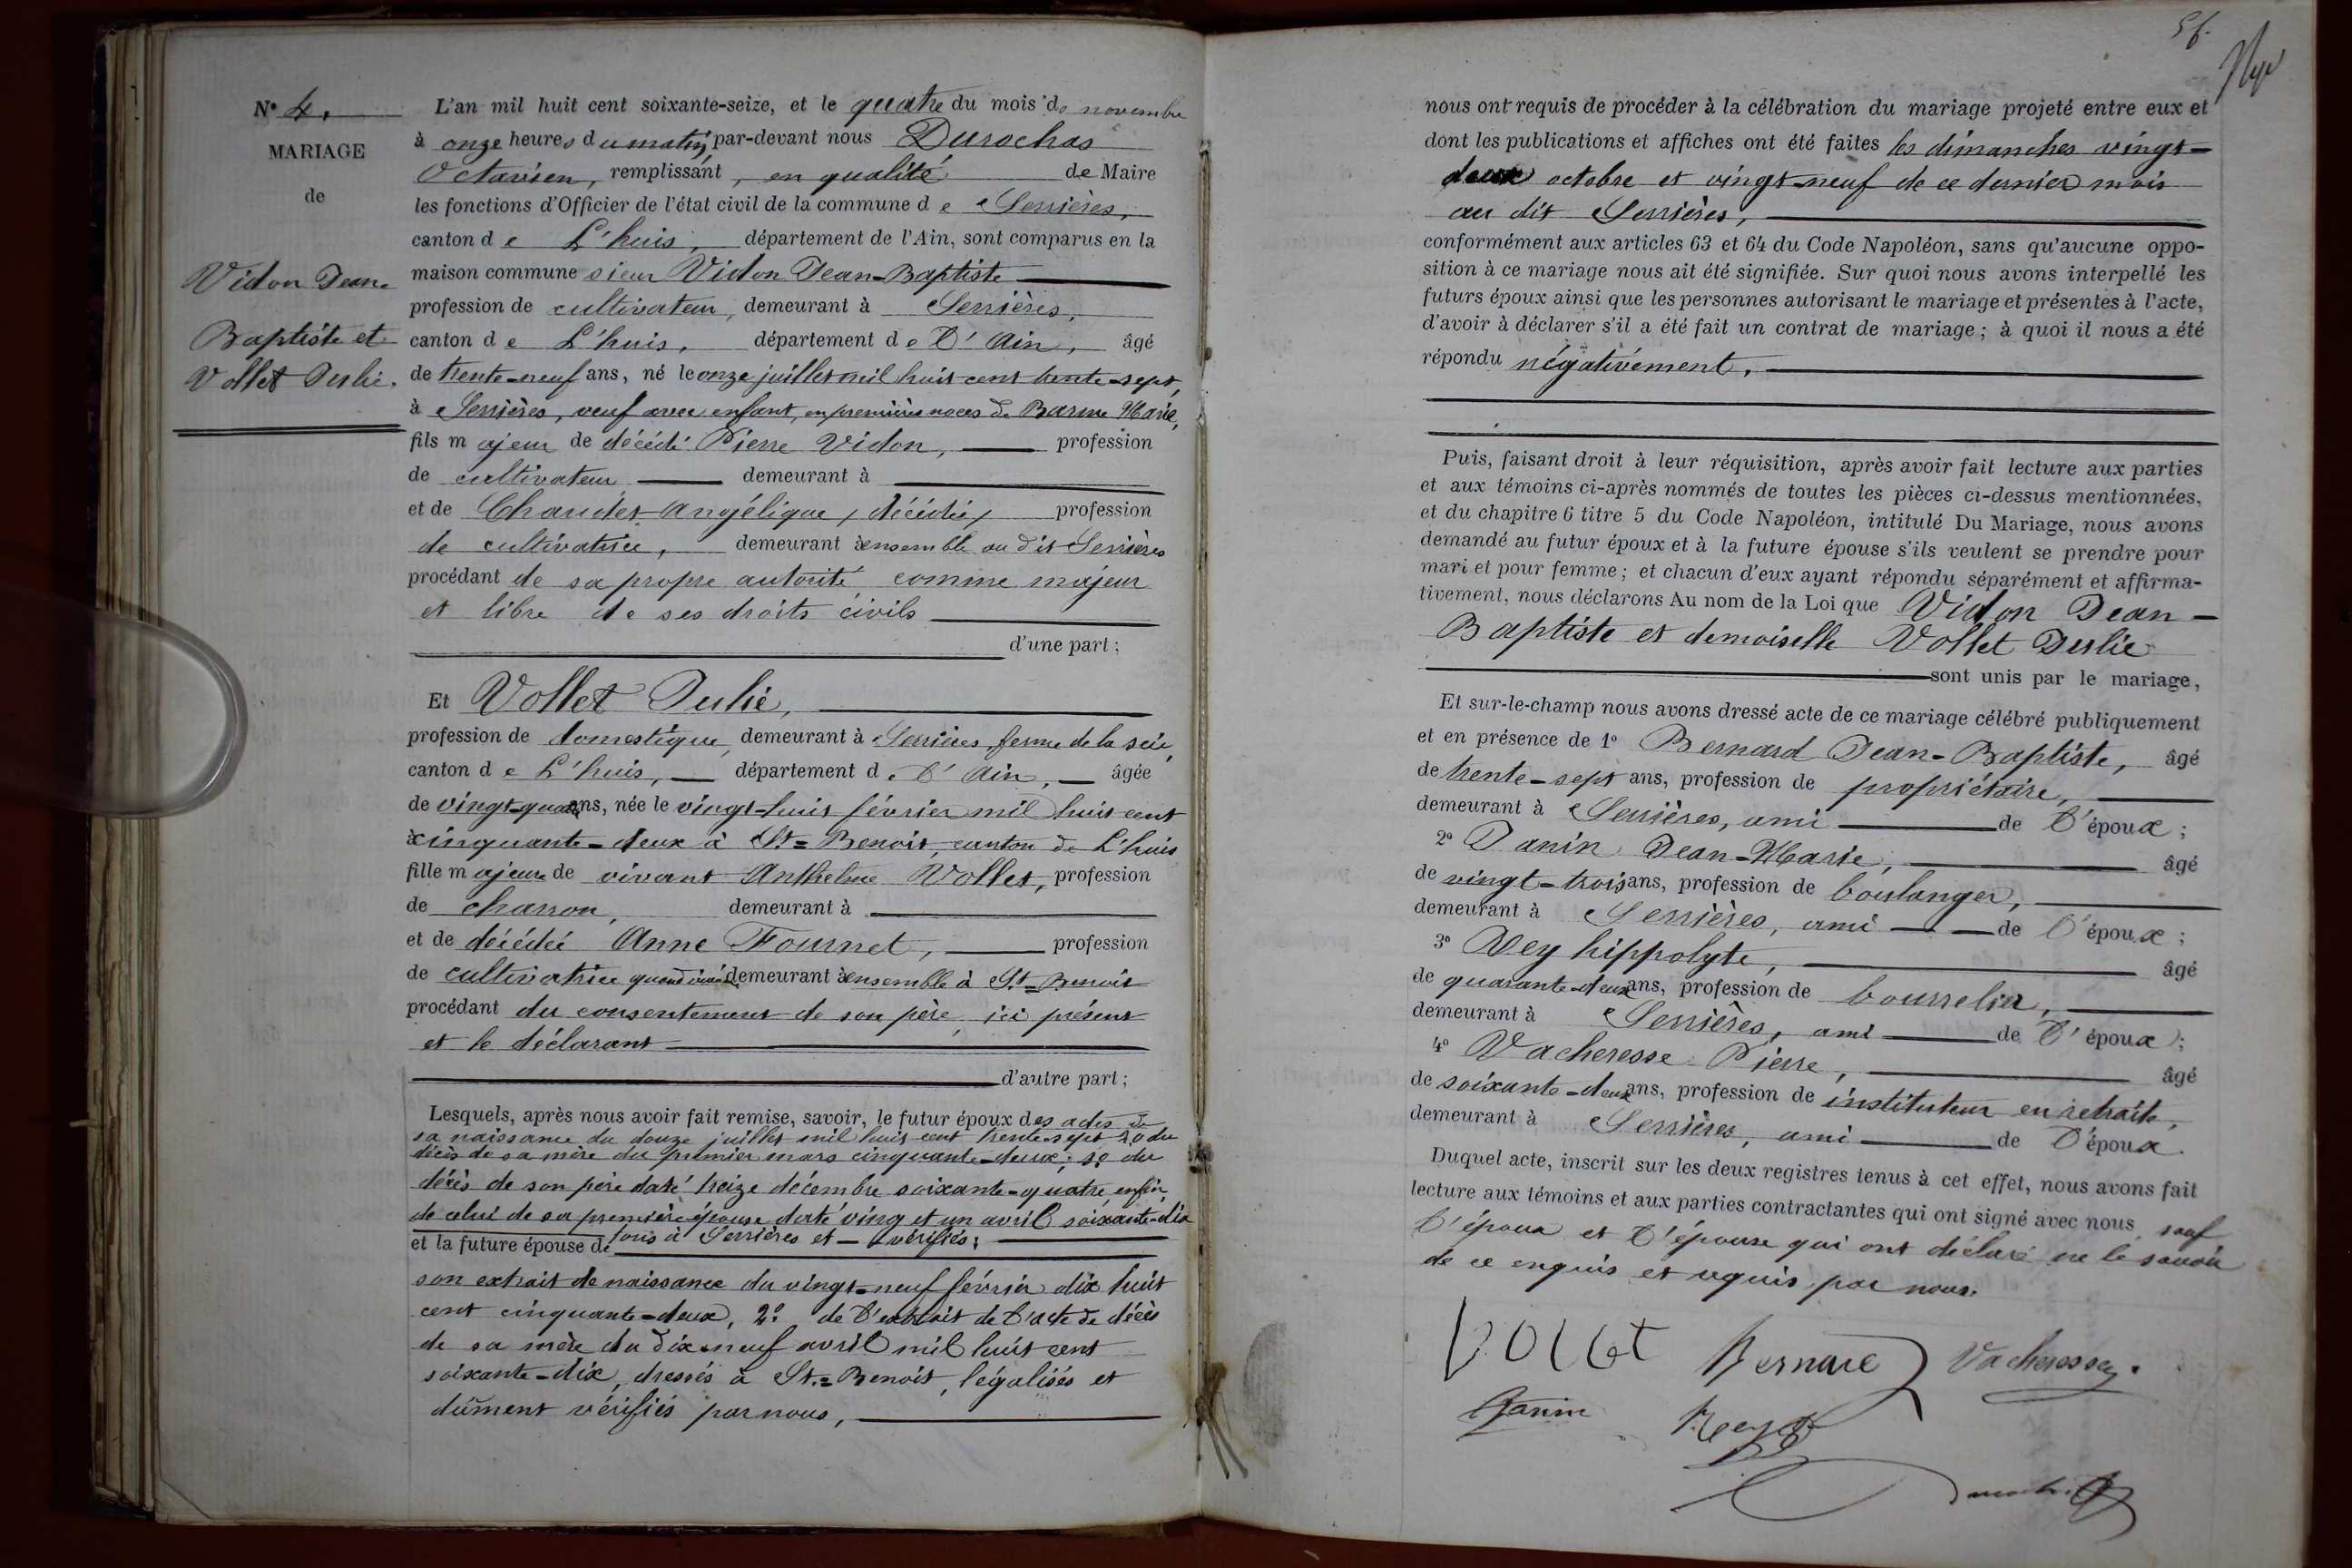 N° 4.
MARIAGE
de
Vidon Jean-
Baptiste et
Vollet Julie.
L'an mil huit cent soixante-seize, et le quatre du mois de novembre
à onze heures du matin, par-devant nous Durochas
Octavien, remplissant, en qualité de Maire
les fonctions d'Officier de l'état civil de la commune de Serrières,
canton de L'huis, département de l'Ain, sont comparus en la
maison commune sieur Vidon Jean-Baptiste
profession de cultivateur, demeurant à Serrières,
canton de L'huis, département de l'Ain, âgé
de trente-neuf ans, né le onze juillet mil huit cent trente-sept,
à Serrières, veuf avec enfant, en premières noces de Marie,
fils majeur de décédé Pierre Vidon, profession
de cultivateur demeurant à
et de Angélique, décédée, profession
de cultivatrice, demeurant à ensemble au dit Serrières
procédant de sa propre autorité comme majeur
et libre de ses droits civils
d'une part;
Et Vollet Julie,
profession de domestique, demeurant à Serrières, ferme de la scie,
canton de L'huis, département de l'Ain, âgée
de vingt-quatre ans, née le vingt-huit février mil huit cent
à cinquante-deux à St=Benoit, canton de L'huis
fille majeure de vivant Anthelme Vollet, profession
de charron, demeurant à
et de décédée Anne Fournet, profession
de cultivatrice quand vivait demeurant à ensemble à St=Benoit
procédant du consentement de son père, ici présent
et le déclarant
d'autre part;
Lesquels, après nous avoir fait remise, savoir, le futur époux des actes de
sa naissance du douze juillet mil huit cent trente-sept 2° du
décès de sa mère du premier mars cinquante-deux; 3° du
décès de son père daté treize décembre soixante-quatre enfin,
de celui de sa première épouse daté vingt et un avril soixante-dix
tous à Serrières et vérifiés;
et la future épouse de
son extrait de naissance du vingt-neuf février dix huit
cent cinquante-deux, 2° de l'extrait de l'acte de décès
de sa mère du dix-neuf avril mil huit cent
soixante-dix, dressés à St.=Benoit, légalisés et
dûment vérifiés par nous,
nous ont requis de procéder à la célébration du mariage projeté entre eux et
dont les publications et affiches ont été faites les dimanches vingt-
deux octobre et vingt-neuf de ce dernier mois
au dit Serrières,
conformément aux articles 63 et 64 du Code Napoléon, sans qu'aucune oppo-
sition à ce mariage nous ait été signifiée. Sur quoi nous avons interpellé les
futurs époux ainsi que les personnes autorisant le mariage et présentes à l'acte,
d'avoir à déclarer s'il a été fait un contrat de mariage; à quoi il nous a été
répondu négativement.
Puis, faisant droit à leur réquisition, après avoir fait lecture aux parties
et aux témoins ci-après nommés de toutes les pièces ci-dessus mentionnées,
et du chapitre 6 titre 5 du Code Napoléon, intitulé Du Mariage, nous avons
demandé au futur époux et à la future épouse s'ils veulent se prendre pour
mari et pour femme; et chacun d'eux ayant répondu séparément et affirma-
tivement, nous déclarons Au nom de la Loi que Vidon Jean-
Baptiste et demoiselle Vollet Julie
sont unis par le mariage,
Et sur-le-champ nous avons dressé acte de ce mariage célébré publiquement
et en présence de 1° Bernard Jean-Baptiste, âgé
de trente-sept ans, profession de propriétaire,
demeurant à Serrières, ami de l'époux;
2° Janin Jean-Marie, âgé
de vingt-trois ans, profession de boulanger,
demeurant à Serrières, ami de l'époux;
3° Rey hippolyte, âgé
de quarante-deux ans, profession de bourrelier,
demeurant à Serrières, ami de l'époux;
4° Vacheresse Pierre, âgé
de soixante-deux ans, profession de instituteur en retraite,
demeurant à Serrières, ami de l'époux.
Duquel acte, inscrit sur les deux registres tenus à cet effet, nous avons fait
lecture aux témoins et aux parties contractantes qui ont signé avec nous, sauf
l'époux et l'épouse qui ont déclaré ne le savoir
de ce enquis et requis par nous.
Vollet Bernard Vacheresse
Janin Rey